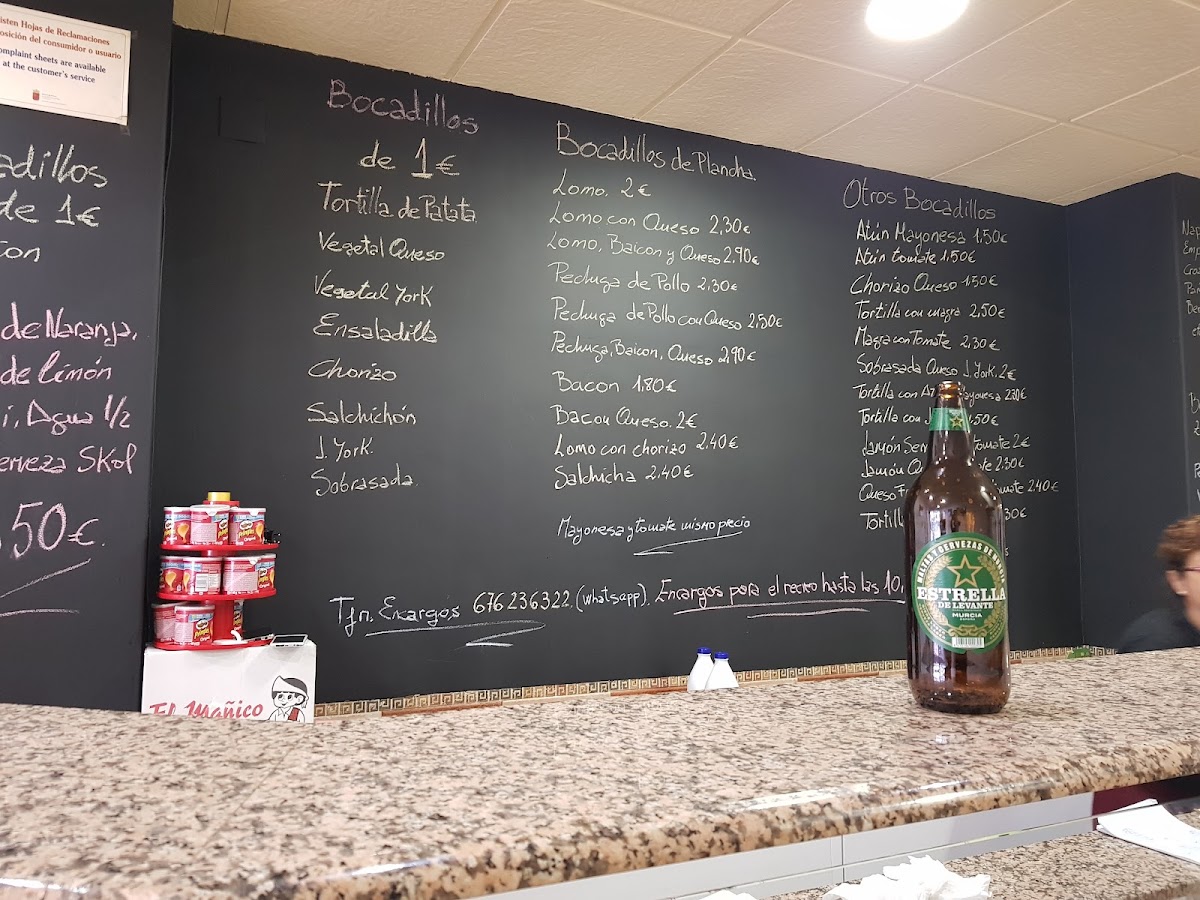 isten Hojas de Reclamaciones
osición del consumidor o usuario
omplaint sheets are available
at the customer's service
adillos
de 1€
con
de Naranja,
de limón
i, Agua 1/2
erveza SKol
50€.
Bocadillos
de 1€
Tortilla de Patata
Vegetal Queso
Vegetal York
Ensaladilla
Chorizo
Salchichón
J. York.
Sobrasada
Bocadillos de Plancha.
Lomo. 2€
Lomo con Queso 2,30€
Lomo, Baicon y Queso 2,90€
Pechuga de Pollo 2,30€
Pechuga de Pollo con Queso 2,50€
Pechuga, Baicon, Queso 2,90€
Bacon 1,80€
Bacon Queso. 2€
Lomo con chorizo 2,40€
Salchicha 2,40€
Mayonesa y tomate mismo precio
Otros Bocadillos
Atún Mayonesa 1,50€
Atún tomate 1,50€
Chorizo Queso 1,50€
Tortilla con magra 2,50€
Magra con Tomate 2,30€
Sobrasada Queso J. York. 2€
Tortilla con ayonesa 2,30€
Tortilla con ,50€
Jamón omate 2€
Jamón ate 2,30€
Queso omate 2,40€
Tortill 30€
Tfn. Encargos 676236322. (whatsapp). Encargos para el recreo hasta las 10,
Pringles
Original
El Mañico
ESTRELLA
DE LEVANTE
MURCIA